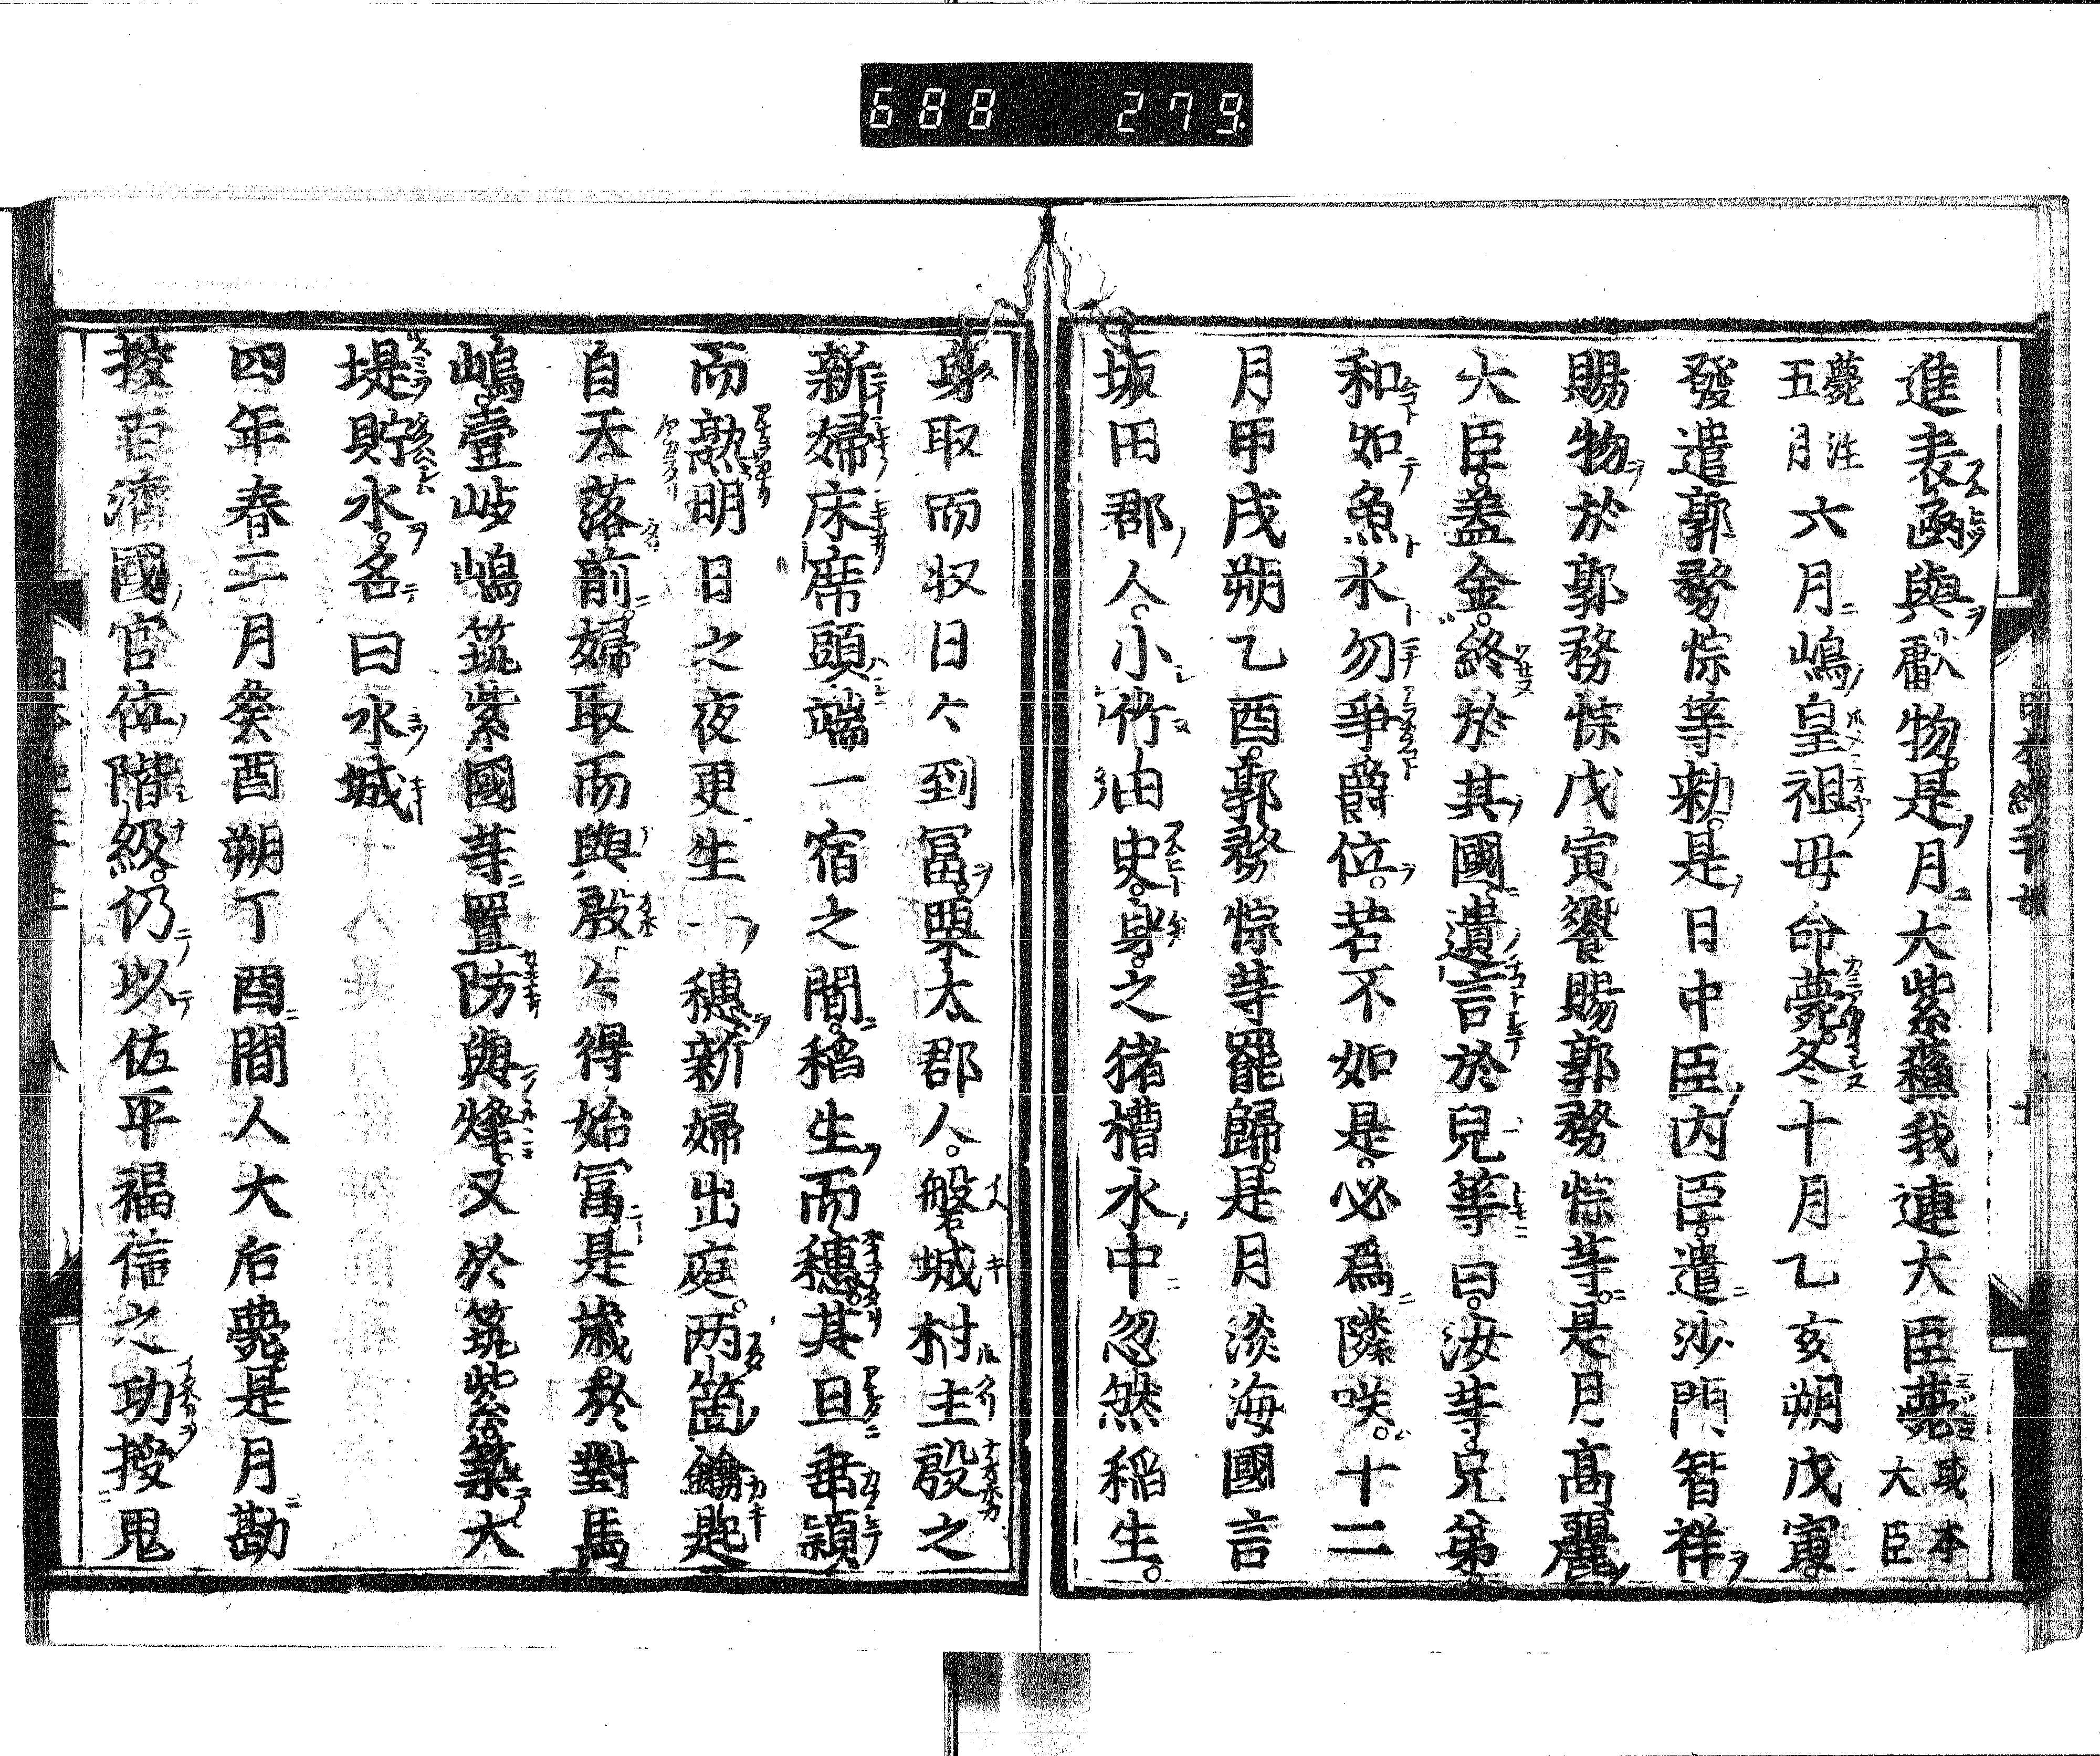 688 279
進表函與獻物是月大紫蘓我連大臣薨或本大臣
薨注五月六月嶋皇祖母命薨冬十月乙亥朔戊寅
發遣郭務悰等勑是日中臣内臣遣沙門智祥
賜物於郭務悰戊寅饗賜郭務悰等是月高麗
大臣蓋金終於其國遺言於兒等曰汝等兄弟
和如魚水勿爭爵位若不如是必為隣咲十二
月甲戌朔乙酉郭務悰等罷歸是月淡海國言
坂田郡人小竹由史身之猪槽水中忽然稻生
身取而収日々到冨栗太郡人磐城村主殷之
新婦床席頭端一宿之間稻生而穗其旦垂頴
而熟明日之夜更生一穗新婦出庭两箇鑰匙
自天落前婦取而與殷々得始冨是歳於對馬
嶋壹岐嶋筑紫國等置防與烽又於筑紫築大
堤貯水名曰水城
四年春二月癸酉朔丁酉間人大后薨是月勘
挍百濟國官位階級仍以佐平福信之功授鬼